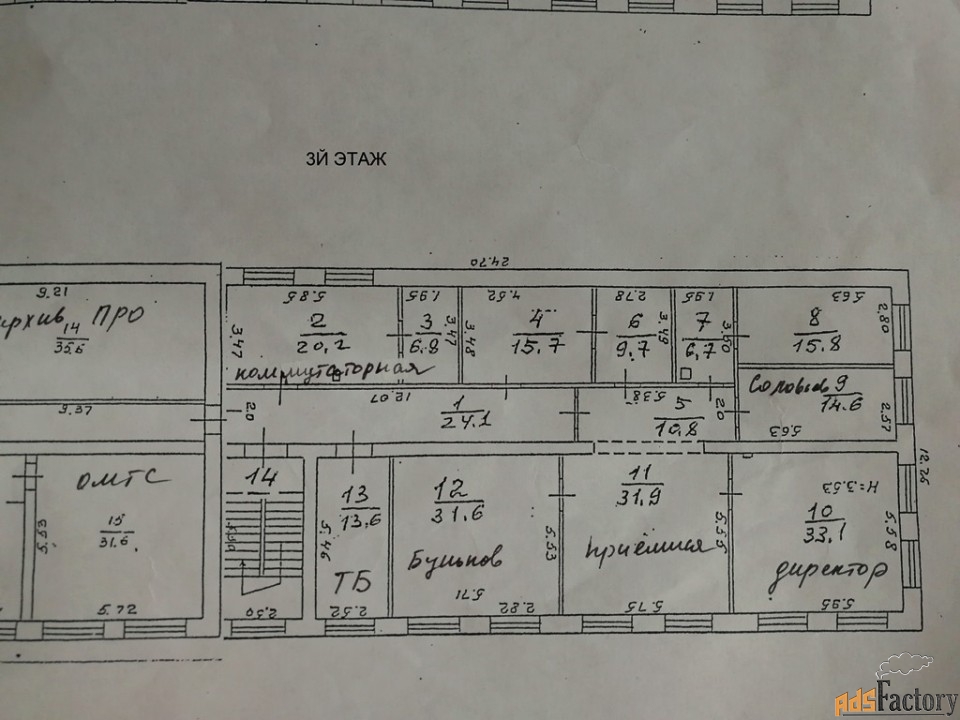 3Й ЭТАЖ
24.70
9.21
5.85
1.95
4.52
2.78
1.95
5.63
архив ПРО
14
35.6
3.47
2
20,2
3
6.8
3.47
3.48
4
15,7
6
9.7
3.49
7
6,7
3.50
8
15.8
2.80
коммутаторная
9.37
2.0
12.07
1
24.1
5.38
5
10,8
2.0
Соловьев 9
14.6
5.63
2.57
12.26
ОМТС
15
31.6
5.53
5.72
14
2.50
13
13,6
5.46
ТБ
2.52
12
31.6
5.53
5.71
2.82
11
31.9
приёмная
5.55
5.75
H=3.53
10
33.1
5.58
директор
5.95
AdsFactory